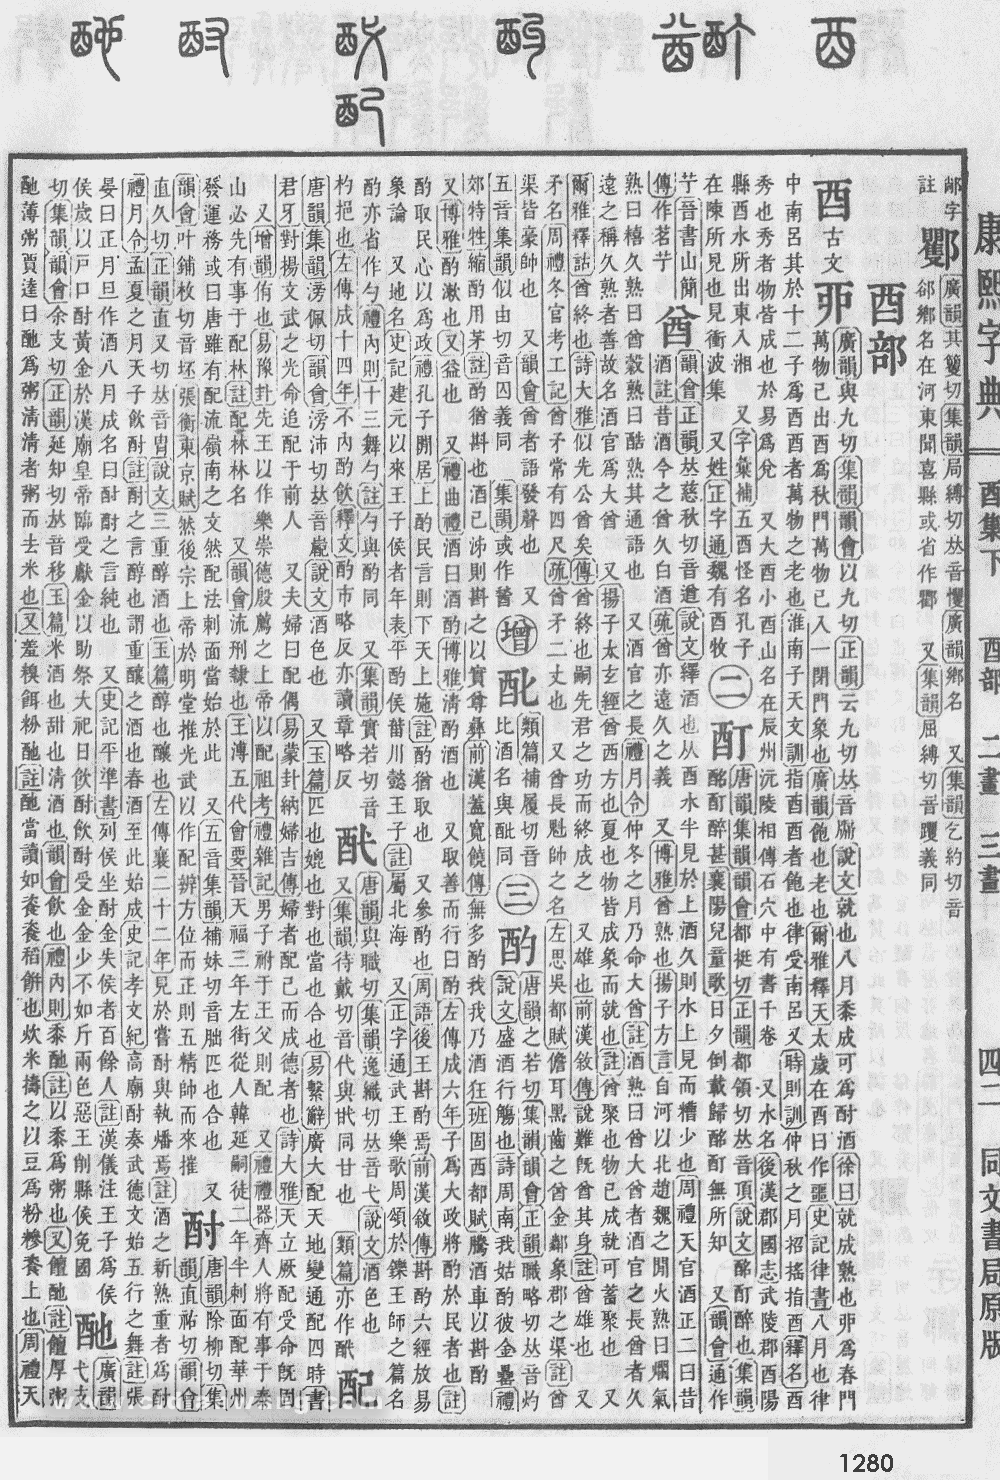 康熙字典 酉集下 酉部 二畫 三畫 四二 同文書局原版
廣韻其矍切集韻局縛切𠀤音戄廣韻鄉名 又集韻乞約切音
註 鄉名在河東聞喜縣或省作 又集韻屈縛切音躩義同
酉部
酉古文丣 廣韻與九切集韻韻會以九切正韻云九切𠀤音牖說文就也八月黍成可爲酎酒徐曰就成熟也丣爲春門
萬物已出酉爲秋門萬物已入一閉門象也廣韻飽也老也爾雅釋天太歲在酉曰作噩史記律書八月也律
中南呂其於十二子爲酉酉者萬物之老也淮南子天文訓指酉酉者飽也律受南呂又時則訓仲秋之月招搖指酉釋名酉
秀也秀者物皆成也於易爲兌 又大酉小酉山名在辰州沅陵相傳石穴中有書千卷 又水名後漢郡國志武陵郡酉陽
縣酉水所出東入湘 又字彙補五酉怪名孔子
在陳所見也見衝波集 又姓正字通魏有酉牧
㊁酊 唐韻集韻韻會都挺切正韻都領切𠀤音頂說文酩酊醉也集韻
酩酊醉甚襄陽兒童歌日夕倒載歸酩酊無所知 又韻會通作
艼晉書山簡
傳作茗艼
酋 韻會正韻𠀤慈秋切音遒說文繹酒也从酉水半見於上酒久則水上見而糟少也周禮天官酒正二曰昔
酒註昔酒今之酋久白酒疏酋亦遠久之義 又博雅酋熟也揚子方言自河以北趙魏之閒火熟曰爛氣
熟曰糦久熟曰酋穀熟曰酷熟其通語也 又酒官之長禮月令仲冬之月乃命大酋註酒熟曰酋大酋者酒官之長酋者久
遠之稱久熟者善故名酒官爲大酋 又揚子太玄經酋西方也夏也物皆成象而就也註酋聚也物已成就可蓄聚也 又
爾雅釋詁酋終也詩大雅似先公酋矣傳酋終也嗣先君之功而終成之 又雄也前漢敘傳說難旣酋其身註酋雄也 又
長也周禮冬官考工記酋矛常有四尺疏酋二丈也 又酋長魁帥之名左思吳都賦儋耳黑齒之酋金鄰象郡之渠註酋
渠皆豪帥也 又韻會酋者語發聲也 又
五音集韻似由切音囚義同 集韻或作䣭
㊢增 㐂 類篇補履切音
比酒名與䣥同
㊂酌 唐韻之若切集韻韻會正韻職略切𠀤音灼
說文盛酒行觴也詩周南我姑酌彼金罍禮
郊特牲縮酌用茅註酌猶斟也酒已泲則斟之以實尊彝前漢蓋寬饒傳無多酌我我乃酒狂班固西都賦騰酒車以斟酌
又博雅酌漱也 又益也 又禮曲禮酒曰清酌博雅清酌酒也 又取善而行曰酌左傳成六年子爲大政將酌於民者也註
酌取民心以爲政禮孔子閒居上酌民言則下天上施註酌猶取也 又參酌也周語後王斟酌焉前漢敘傳斟酌六經放易
象論 又地名史記建元以來王子侯者年表平酌侯菑川懿王子註屬北海 又正字通武王樂歌周頌於鑠王師之篇名
酌亦省作勺禮內則十三舞勺註勺與酌同 又集韻實若切音
杓挹也左傳成十四年不內酌飮釋文酌市略反亦讀章略反
酖 唐韻與職切集韻逸織切𠀤音弋說文酒色也
又集韻待戴切音代與甙同甘也 類篇亦作䣧
配 唐韻集韻滂佩切韻會滂沛切𠀤音嶏說文酒色也 又玉篇匹也媲也對也當也合也易繫辭廣大配天地變通配四時書
君牙對揚文武之光命追配于前人 又夫婦曰配偶易蒙卦納婦吉傳婦者配己而成德者也詩大雅天立厥配受命旣固
又增韻侑也易豫卦先王以作樂崇德殷薦之上帝以配祖考禮雜記男子祔于王父則配 又禮禮器齊人將有事于泰
山必先有事于配林註配林林名 又韻會流刑隸也王溥五代會要晉天福三年左街從人韓延嗣徒二年半刺面配華州
發運務或曰唐雖有配流嶺南之文然配法刺面當始於此 又五音集韻補妹切音㫲匹也合也 又
韻會叶鋪枚切音坯張衡東京賦然後宗上帝於明堂推光武以作配辨方位而正則五精帥而來摧
酎 唐韻除柳切集韻直祐切韻會
直久切正韻直又切𠀤音冑說文三重醇酒也玉篇醇也釀也左傳襄二十二年見於嘗酎與執燔焉註酒之新熟重者爲酎
禮月令孟夏之月天子飮酎註酎之言醇也謂重釀之酒也春酒至此始成史記孝文紀高廟酎奏武德文始五行之舞註張
晏曰正月旦作酒八月成名曰酎酎之言純也 又史記平準書列侯坐酎金失侯者百餘人註漢儀注王子爲侯
侯歲以戸口酎黃金於漢廟皇帝臨受獻金以助祭大祀日飮酎飮酎受金金少不如斤兩色惡王削縣侯免國
酏 廣韻弋支
切集韻韻會余支切正韻延知切𠀤音移玉篇米酒也甜也清酒也韻會飮也禮內則黍酏註以黍爲粥也又饘酏註饘厚粥
酏薄粥賈逵曰酏爲粥清清者粥而去米也又羞糗餌粉酏註酏當讀如餈餈稻餠也炊米擣之以豆爲粉糝餈上也周禮天
1280